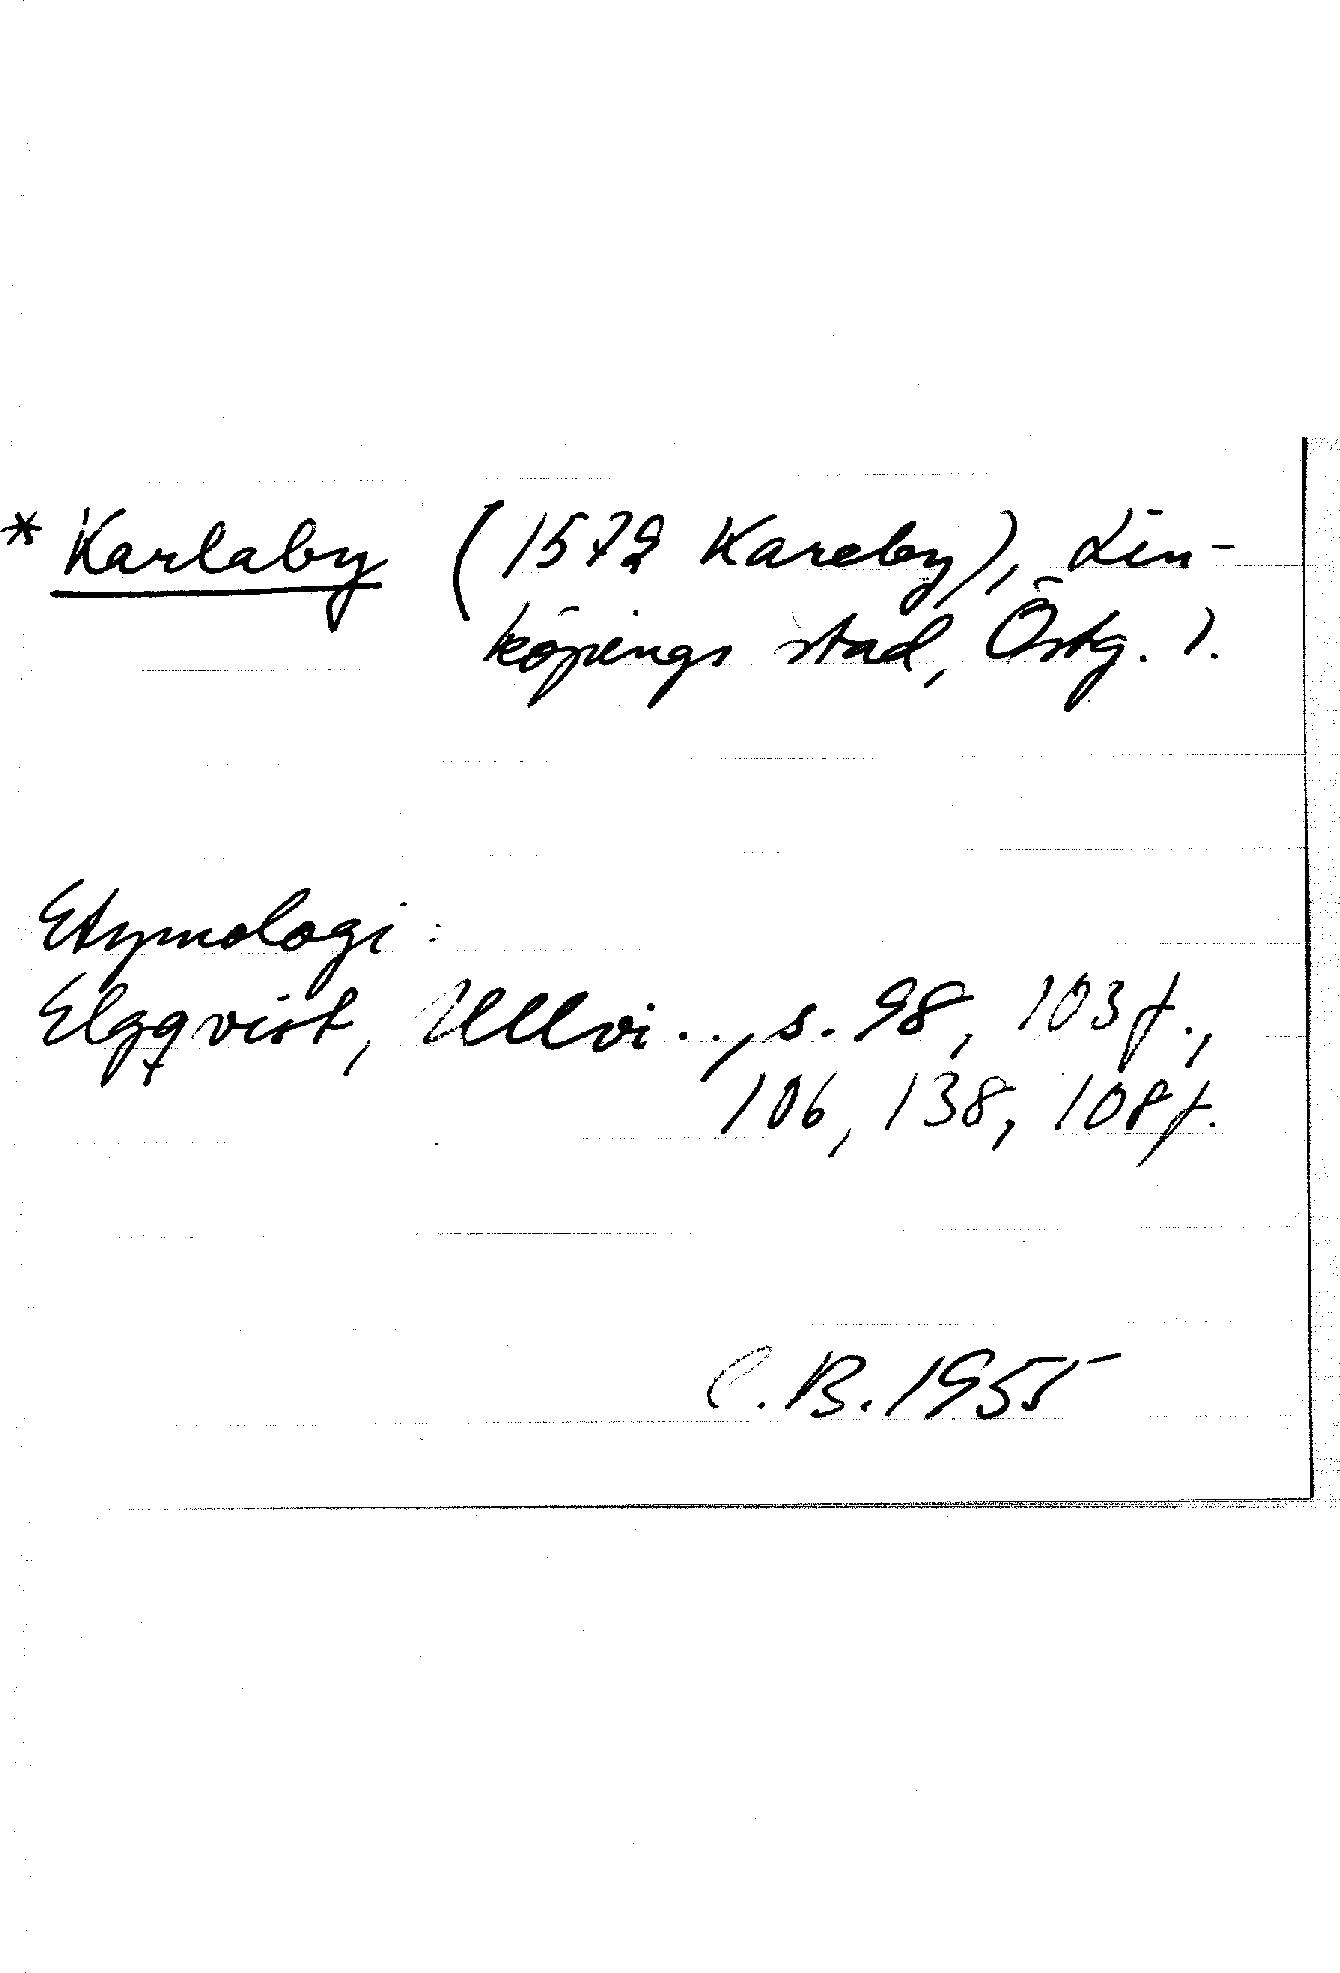 * Karlaby (1572 Kareby), Lin-
köpings stad, Östg. l.
Etymologi:
Elgqvist, Ullvi.., s. 98, 103f.,
106, 138, 108f.
C.B. 1955